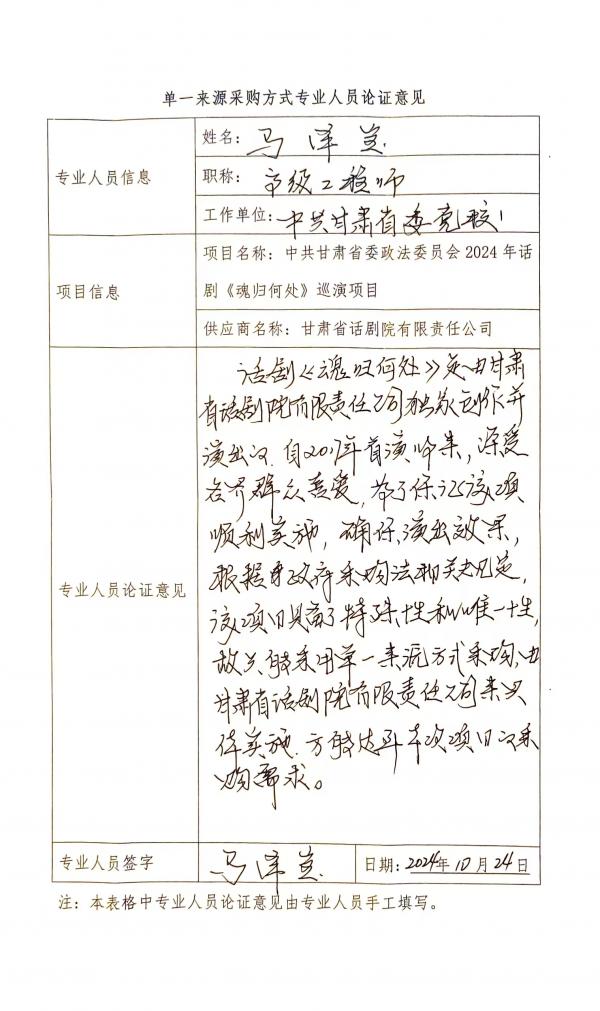 单一来源采购方式专业人员论证意见
专业人员信息
姓名：马泽兰
职称：高级工程师
工作单位：中共甘肃省委党校
项目信息
项目名称：中共甘肃省委政法委员会2024年话
剧《魂归何处》巡演项目
供应商名称：甘肃省话剧院有限责任公司
专业人员论证意见
话剧《魂归何处》是由甘肃
省话剧院有限责任公司独家创作并
演出的，自2017年首演以来，深受
各界群众喜爱，为了保证该项
顺利实施，确保演出效果，
根据政府采购法相关规定，
该项目具备了特殊性和唯一性，
故只能采用单一来源方式采购，由
甘肃省话剧院有限责任公司来具
体实施，方能达到本次项目的采
购需求。
专业人员签字
马泽兰
日期：2024年10月24日
注：本表格中专业人员论证意见由专业人员手工填写。